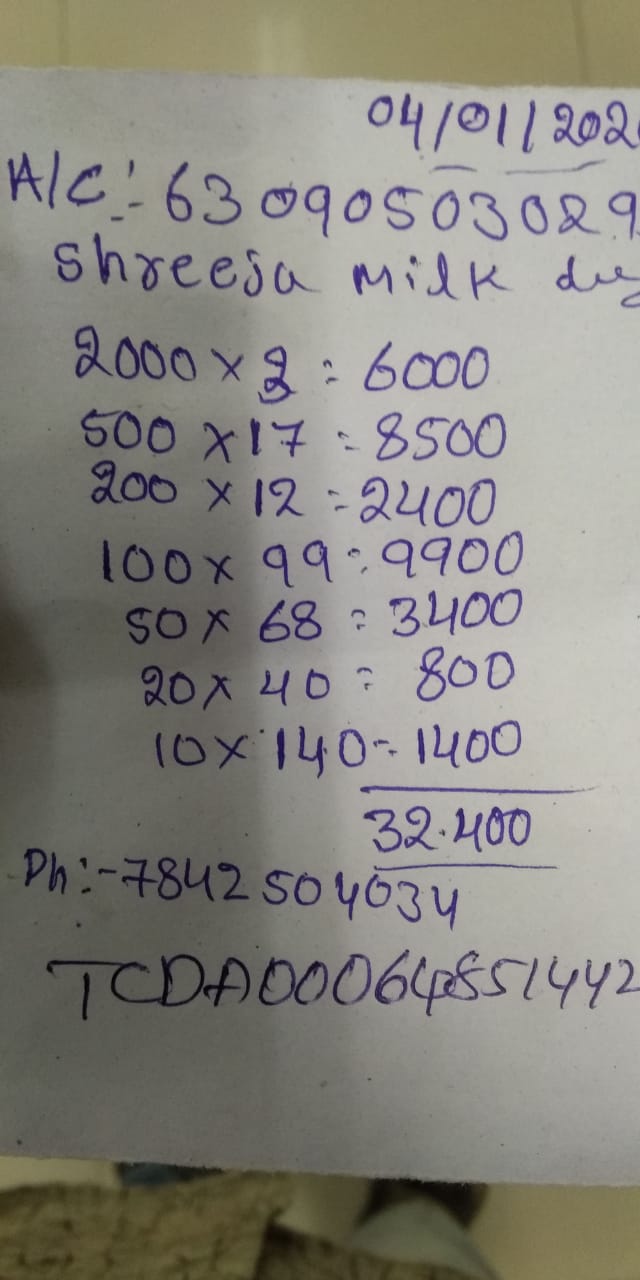 04/01/202
A/C:- 63090503029
Shreeja Milk
2000 x 3 = 6000
500 x 17 = 8500
200 x 12 = 2400
100 x 99 = 9900
50 x 68 = 3400
20 x 40 = 800
10 x 140 = 1400
32.400
Ph:-7842504034
TCDA00064851442